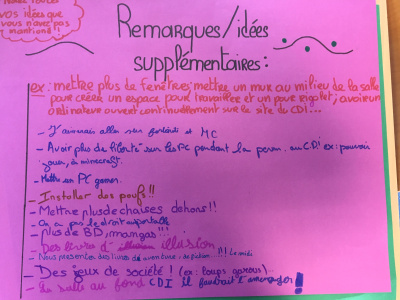 vos idées que
vous n'avez pas
mentionné !!
Remarques/idées
supplémentaires:
ex: mettre plus de fenêtres; mettre un mur au milieu de la salle
pour créer un espace pour travailler et un pour rigoler; avoir un
ordinateur ouvert continuellement sur le site du CDI...
- J'aimerais aller sur et MC
- Avoir plus de liberté sur les PC pendant la perm au CDI ex: pouvoir
jouer à minecraft.
- Mettre un PC gamer.
- Installer des poufs !!
- Mettre plus de chaises dehors !!
- On a pas le droit
- plus de BD, mangas !!!
- Des livres d'illusion
- Nous des livres d'aventure, de fiction !!! le midi
- Des jeux de société ! (ex: loups garous)...
- la salle au fond CDI il faudrait l'aménager !